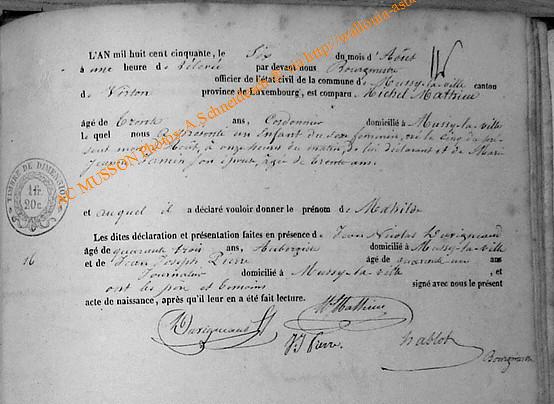 L'AN mil huit cent cinquante, le Six du mois d'Août
à une heure de relevée par devant nous Bourgmestre
officier de l'état civil de la commune de Mussy-la-ville canton
de Virton province de Luxembourg, est comparu Michel Mathieu
âgé de trente ans, Cordonnier domicilié à Mussy-la-ville
Le quel nous a présenté un Enfant du sexe féminin, né le cinq du pré-
sent mois d'Août, à onze heures du matin, de lui déclarant et de Marie
Jeanne son épouse, âgée de trente ans.
et auquel il a déclaré vouloir donner le prénom de Mathilde
Les dites déclaration et présentation faites en présence de Jean Nicolas
âgé de quarante trois ans, Aubergiste domicilié à Mussy-la-ville
et de Jean Joseph Pierre âgé de quarante un ans
Journalier domicilié à Mussy-la-ville , et
ont les père et témoins signé avec nous le présent
acte de naissance, après qu'il leur en a été fait lecture.
Mathieu
JJ Pierre.
Bourgmestre
16
TIMBRE DE DIMENSION
20c
AC MUSSON Photos A Schneider
http://wallonia-ast